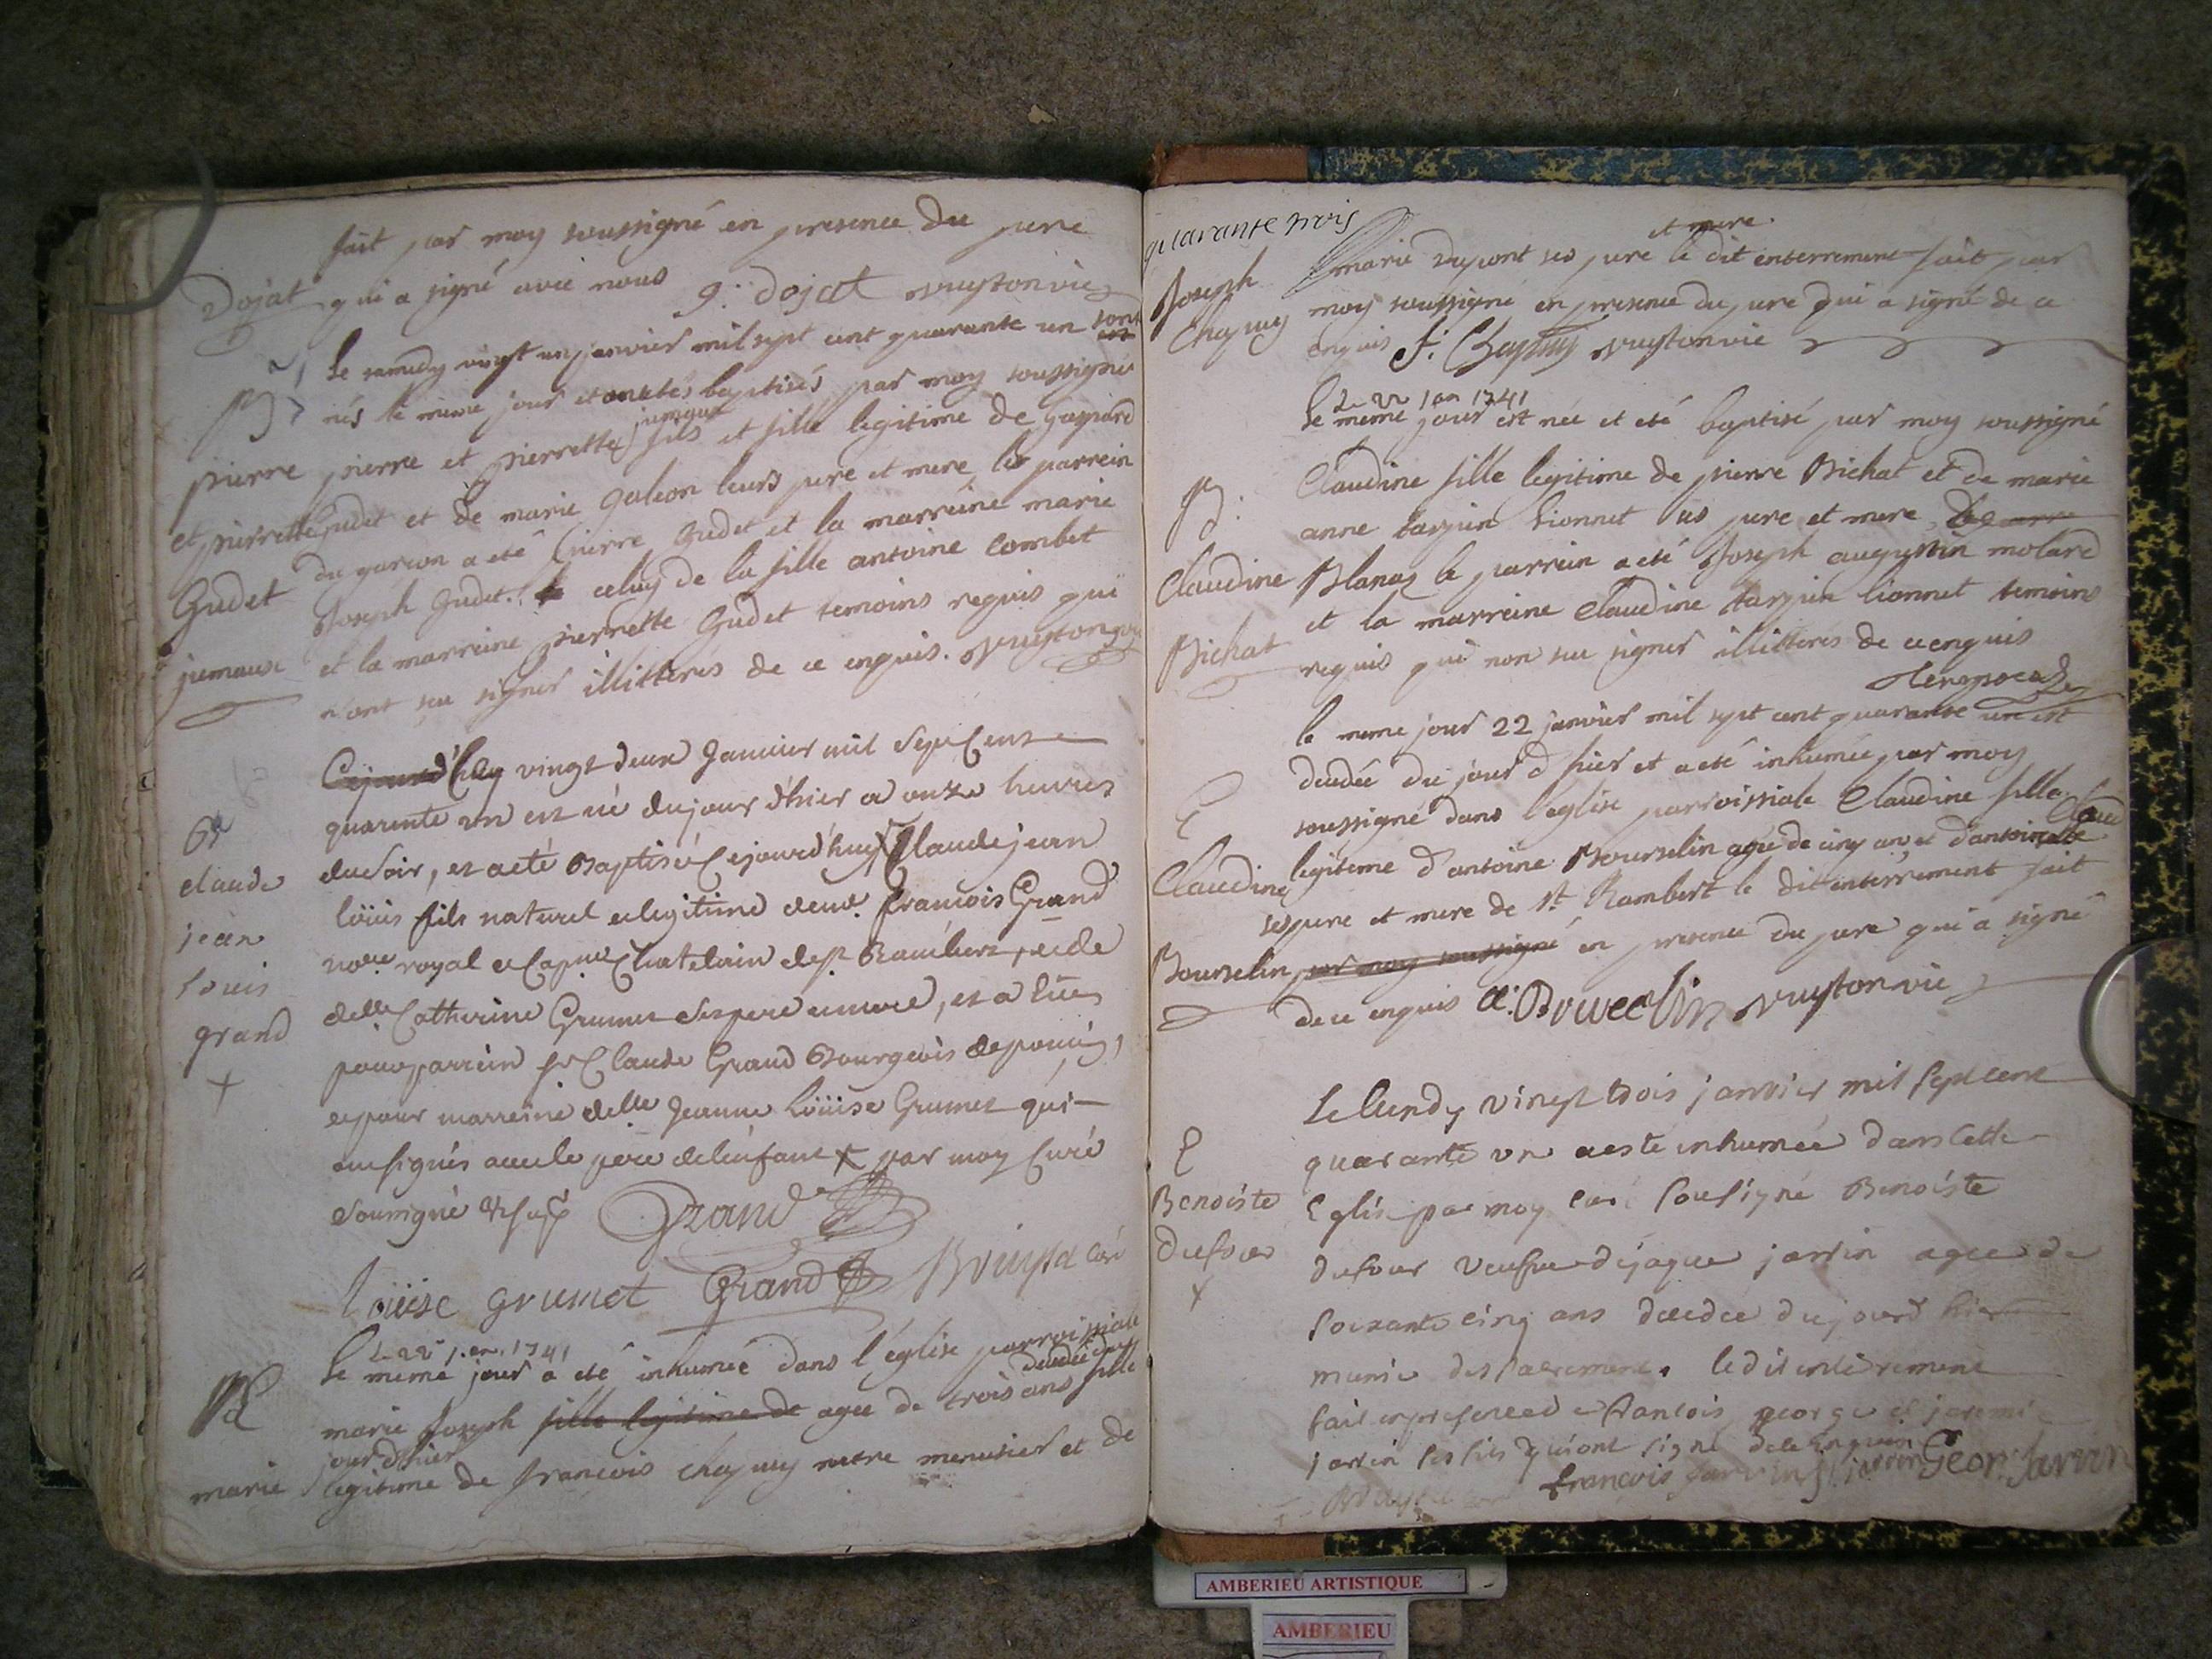 fait par moy soussigné en presence du pere
Dojat qui a signé avec nous g: dojat
Le samedy vingt un janvier mil sept cent quarante un sont
nés le meme jour et ont étés baptisés par moy soussigné
jumeaux
pierre pierre et pierrette fils et fille legitime de gaspard
et pierrette gudet et de marie galeon leurs pere et mere le parrein
du garcon a eté pierre gudet et la marreine marie
Gudet Joseph gudet. celuy de la fille antoine Combet
et la marreine pierrette Gudet temoins requis qui
jumeaux
n'ont sçu signer illitterés de ce enquis.
Cejourd'huy vingt deux Janvier mil sept Cent
quarente un est né du jour d'hier a onze heures
Bp
du soir, et a eté Baptisé Cejourd'huy Claude jean
claude
loüis fils naturel et legitime de me. françois Grand
jean
nore royal et Capne Chatelain de st Rambert, et de
louis
delle Catherine Grumet ses pere et mere, et a eu
grand
pour parrein sr Claude Grand Bourgeois de
et pour marreine delle Jeanne Loüise Grumet qui
ont signés avec le pere de l'enfant par moy Curé
soussigné Grand
loüise grumet Grand Curé
Le 22 jan. 1741
Le meme jour a eté inhumée dans l'église parroissiale
decedée du
marie Joseph fille legitime de agee de trois ans fille
jour d'hier
marie legitime de francois chapuy metre menusier et de
quarante trois
et mere
Joseph marie dupont ses pere le dit enterrement fait par
Chapuy moy soussigné en presence du pere qui a signé de ce
enquis f. Chapuy
Le 22 jan 1741
Le meme jour est née et eté baptisé par moy soussigné
B.
Claudine fille legitime de pierre Bichat et de marie
anne tarpin Lionnet ses pere et mere
Claudine Blanaz le parrein a eté Joseph augustin molard
et la marreine Claudine tarpin lionnet temoins
Bichat requis qui non sçu signer illitterés de ce enquis
le meme jour 22 janvier mil sept cent quarante un est
decedée du jour d'hier et a eté inhumée par moy
E
soussigné dans l'eglise parroissiale Claudine fille
Claudine legitime d'antoine Bourselin agée de cinq ans et d'antoinette
ses pere et mere de St Rambert le dit enterrement fait
Bourselin par moy soussigné en presence du pere qui a signé
de ce enquis
Le lundy vingt trois janvier mil sept cent
E
quarante un a esté inhumée dans cette
Benoiste Eglise par moy curé sousigné Benoiste
Dufour dufour veufve de jaque jarrin agee de
soixante cinq ans decedée du jourd hier
munie des sacrements le dit enterrement
fait en presence de francois george et jeremie
jarrin ses fils qui ont signé de ce enquis
francois jarrin Geor: Jarrin
AMBERIEU ARTISTIQUE
AMBERIEU